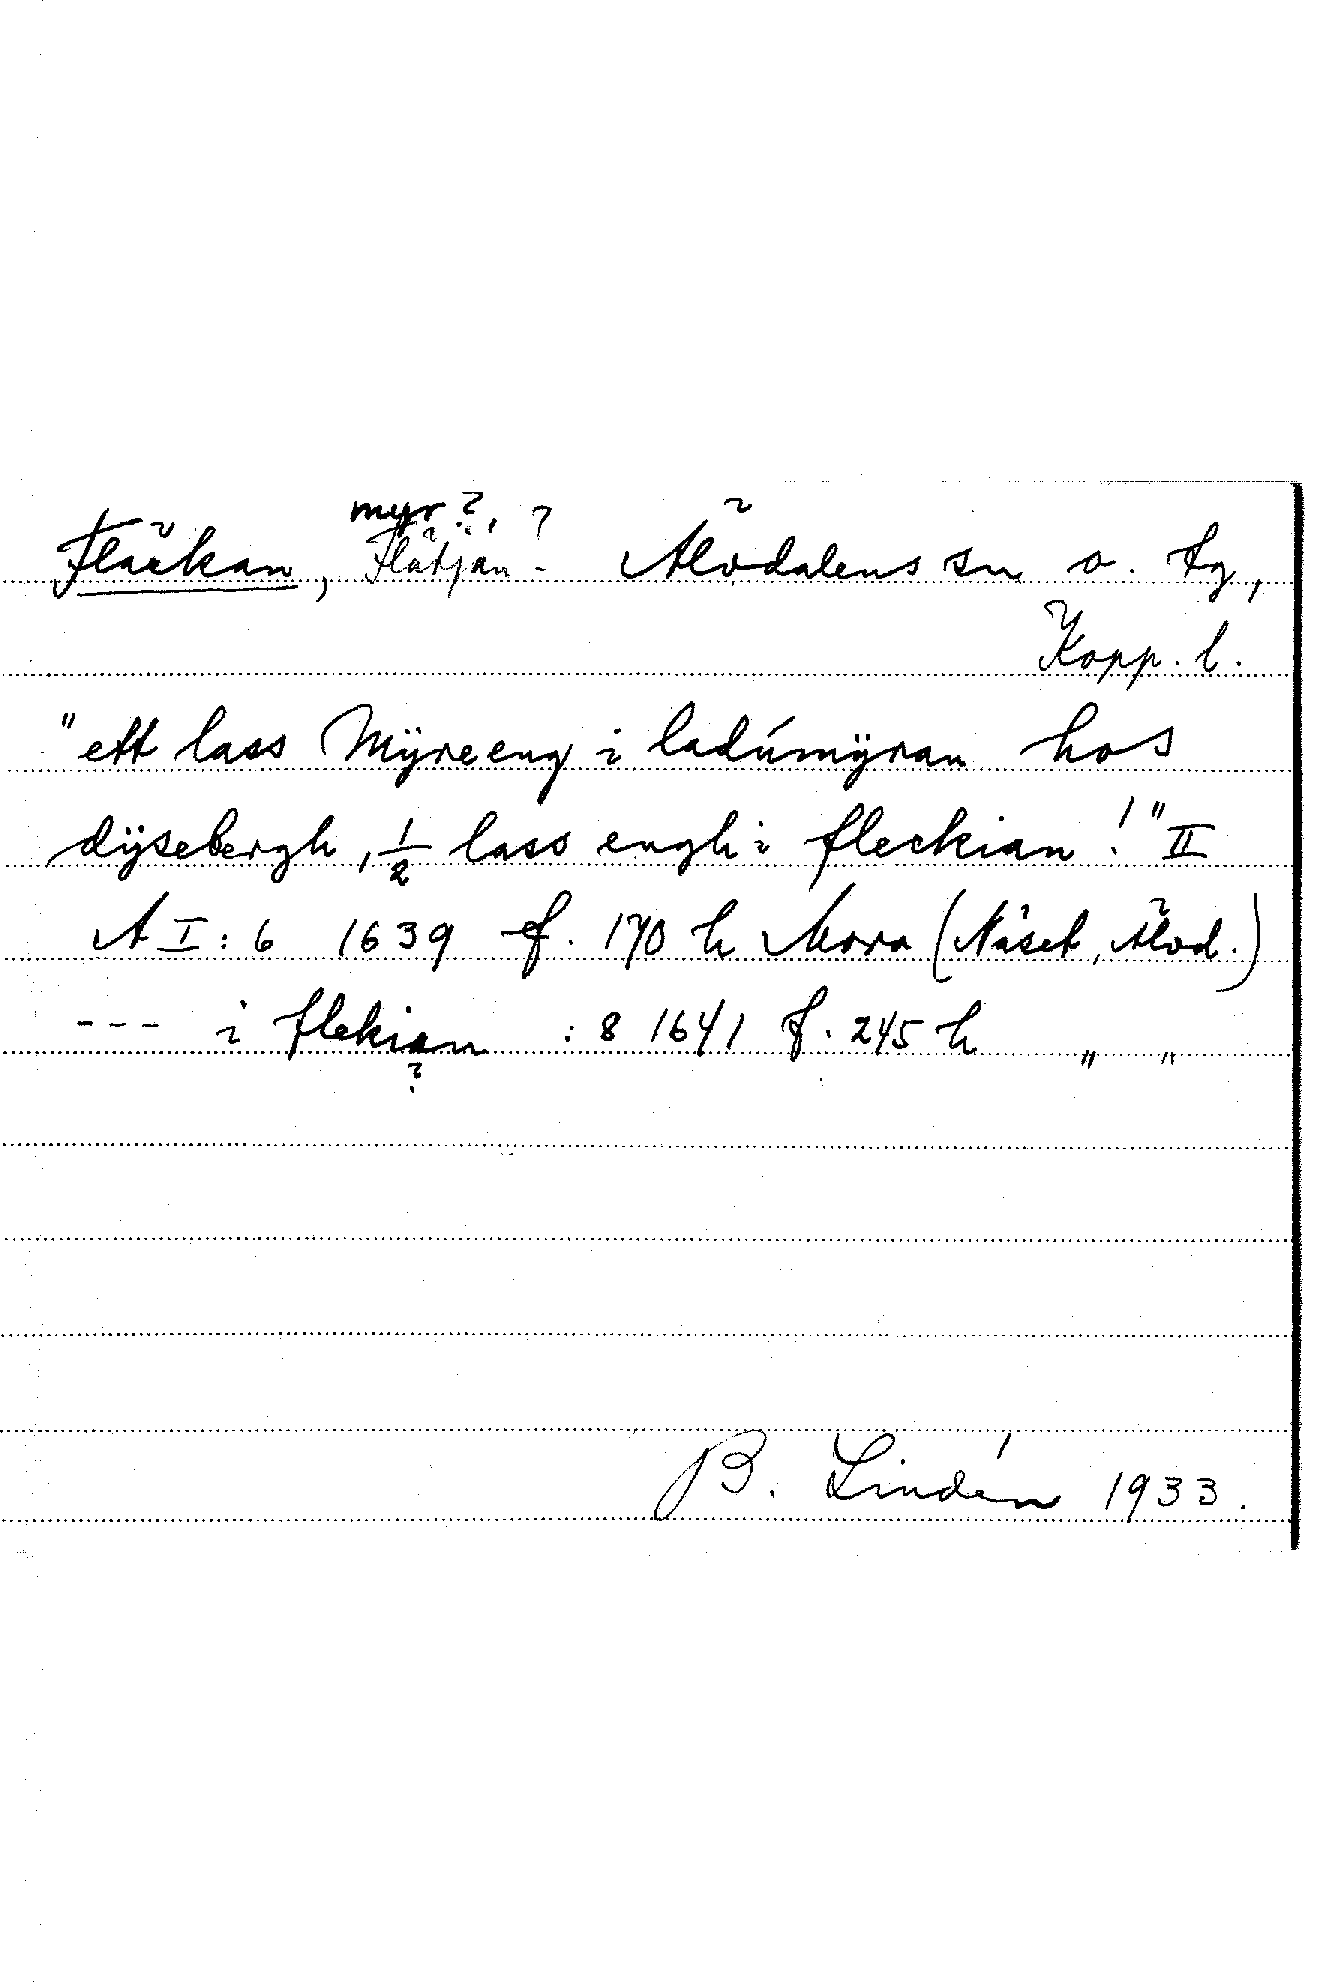 myr?, ?
Fläckan, Flätjan - Älvdalens sn o. tg,
Kopp. l.
"ett lass Mÿreeng i ladúmÿran hos
dÿsebergh, 1/2 lass engh i fleckian!" II
A I: 6 1639 f. 170 h Mora (Näset, Älvd.)
--- i flekian : 8 1641 f. 245 h " "
?
B. Lindén 1933.